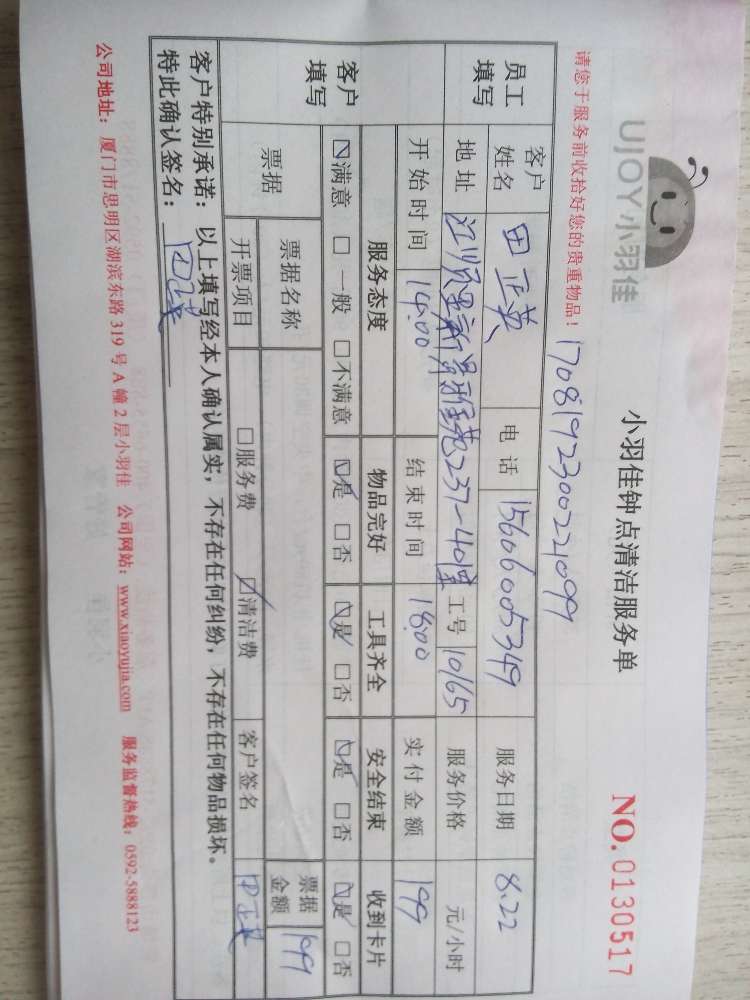 UJOY小羽佳
小羽佳钟点清洁服务单
NO.0130517
请您于服务前收拾好您的贵重物品！
1708192300221099
员工填写
客户姓名 田正英 电话 15606005349 服务日期 8.22
地址 江顺里新景雅苑237-401室 工号 10165 服务价格 元/小时
开始时间 14:00 结束时间 18:00 实付金额 199
客户填写
服务态度 物品完好 工具齐全 安全结束 收到卡片
☑满意 □一般 □不满意 ☑是 □否 ☑是 □否 ☑是 □否 ☑是 □否
票据 票据名称 票据金额 199
开票项目 □服务费 ☑清洁费 客户签名 田正英
客户特别承诺：以上填写经本人确认属实，不存在任何纠纷，不存在任何物品损坏。
特此确认签名：田正英
公司地址：厦门市思明区湖滨东路 319 号 A 幢 2 层小羽佳 公司网站：www.xiaoyujia.com 服务监督热线：0592-5888123